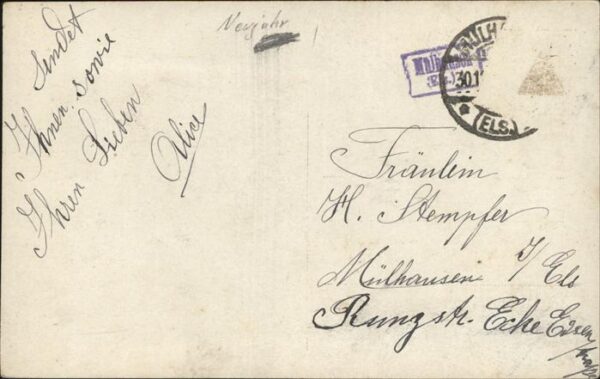 Neujahr
Sendet
Ihnen sowie
Ihren Lieben
Alice
Mülhausen
(Els.)
MÜLH
30.1
(ELS.)
Fräulein
H. Stempfer
Mülhausen i/Els
Rungstr. Ecke Eisen